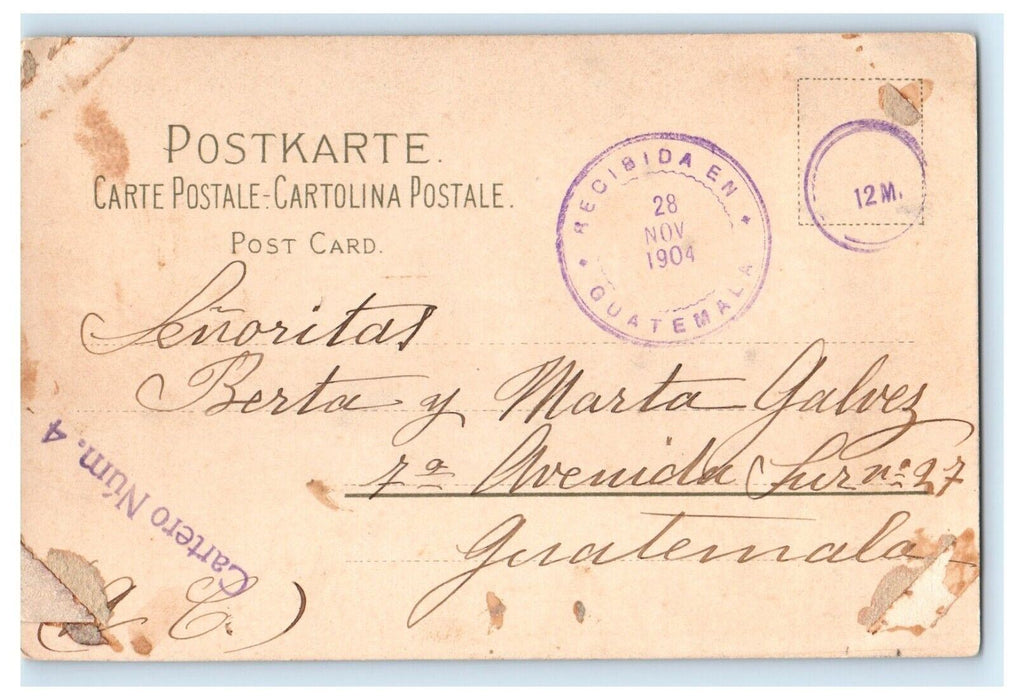 POSTKARTE.
CARTE POSTALE-CARTOLINA POSTALE.
POST CARD.
RECIBIDA EN
28
NOV
1904
GUATEMALA
12 M.
Señoritas
Berta y Marta Galvez
7ª Avenida Sur nº 27
Guatemala
Cartero Núm. 4
( C. )